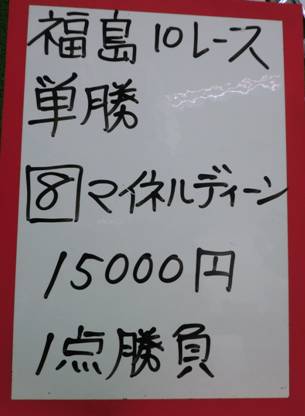 福島10レース
単勝
8マイネルディーン
15000円
1点勝負